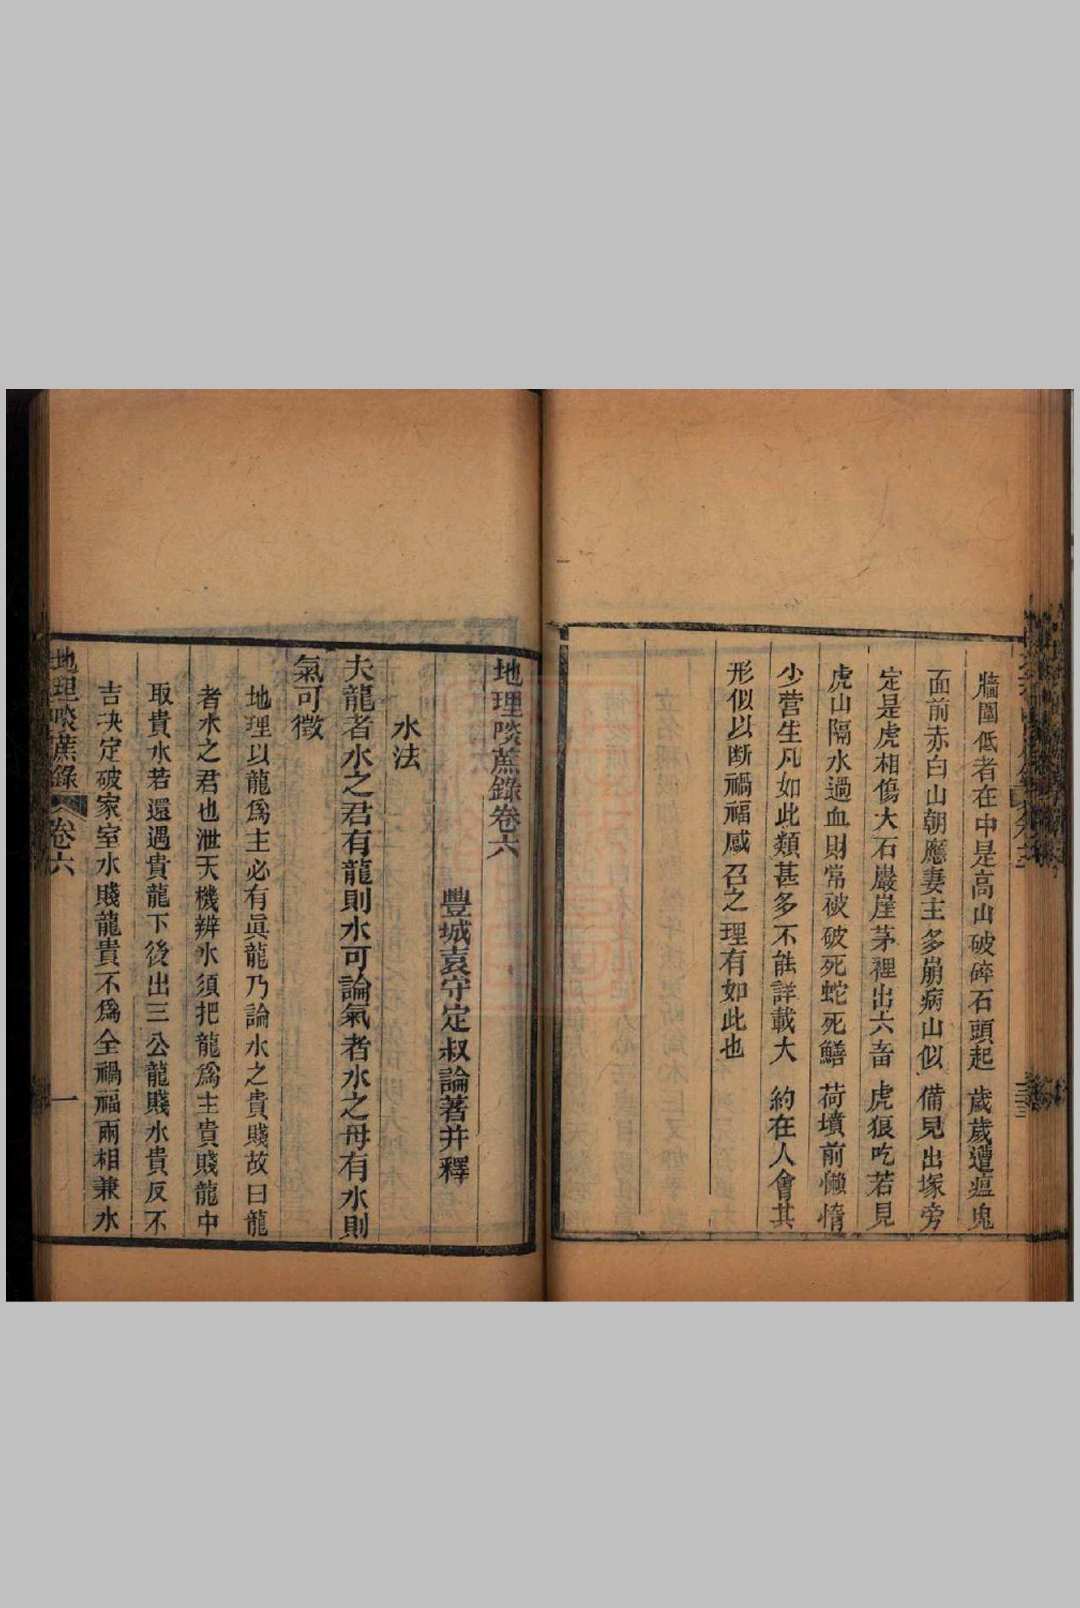 牆圍低者在中是高山破碎石頭起歲歲遭瘟鬼
面前赤白山朝應妻主多崩病山似備見出塚旁
定是虎相傷大石巖崖茅裡出六畜虎狼吃若見
虎山隔水過血財常被破死蛇死鱔荷墳前懶惰
少營生凡如此類甚多不能詳載大約在人會其
形似以斷禍福感召之理有如此也
地理啖蔗錄卷六
豐城袁守定叔論著并釋
水法
夫龍者水之君有龍則水可論氣者水之母有水則
氣可徵
地理以龍爲主必有眞龍乃論水之貴賤故曰龍
者水之君也泄天機辨水須把龍爲主貴賤龍中
取貴水若還遇貴龍下後出三公龍賤水貴反不
吉决定破家室水賤龍貴不爲全禍福兩相兼水
地理啖蔗錄 卷六 一